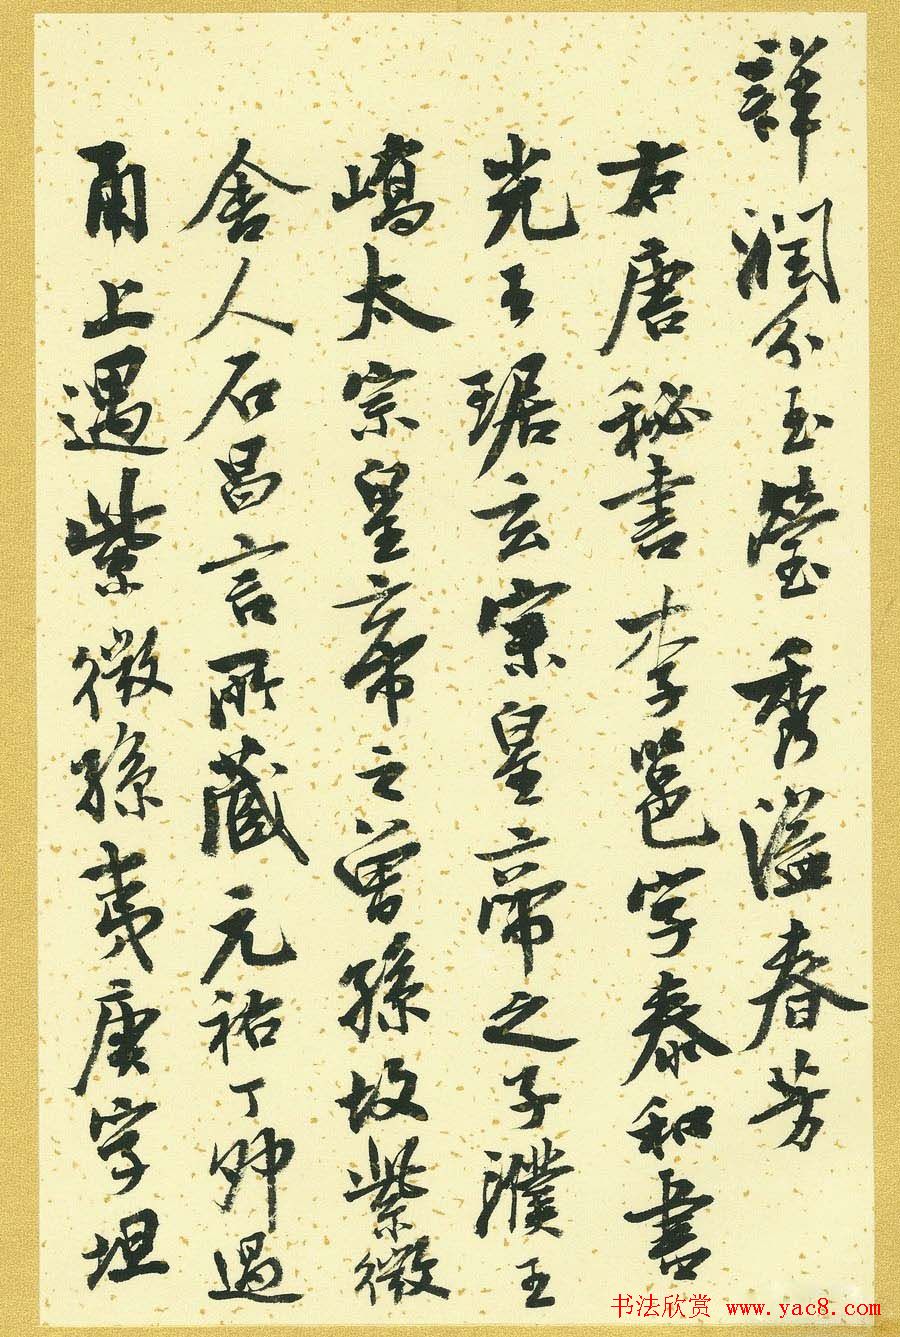 詳潤分玉瑩秀溢春芳
右唐秘書李邕字泰和書
光王琚玄宗皇帝之子濮王
嶠太宗皇帝之曾孫故紫微
舍人石昌言所藏元祐丁卯過
甬上遇紫微孫夷庚字坦
书法欣赏 www.yac8.com